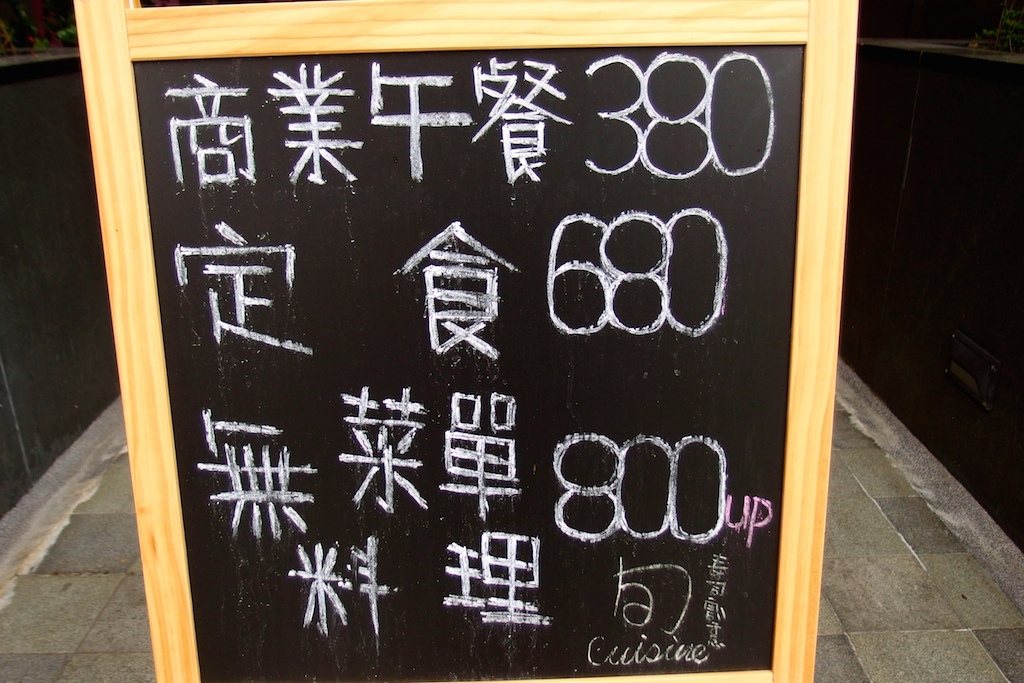 商業午餐 380
定食 680
無菜單 800 UP
料理
旬
Cuisine